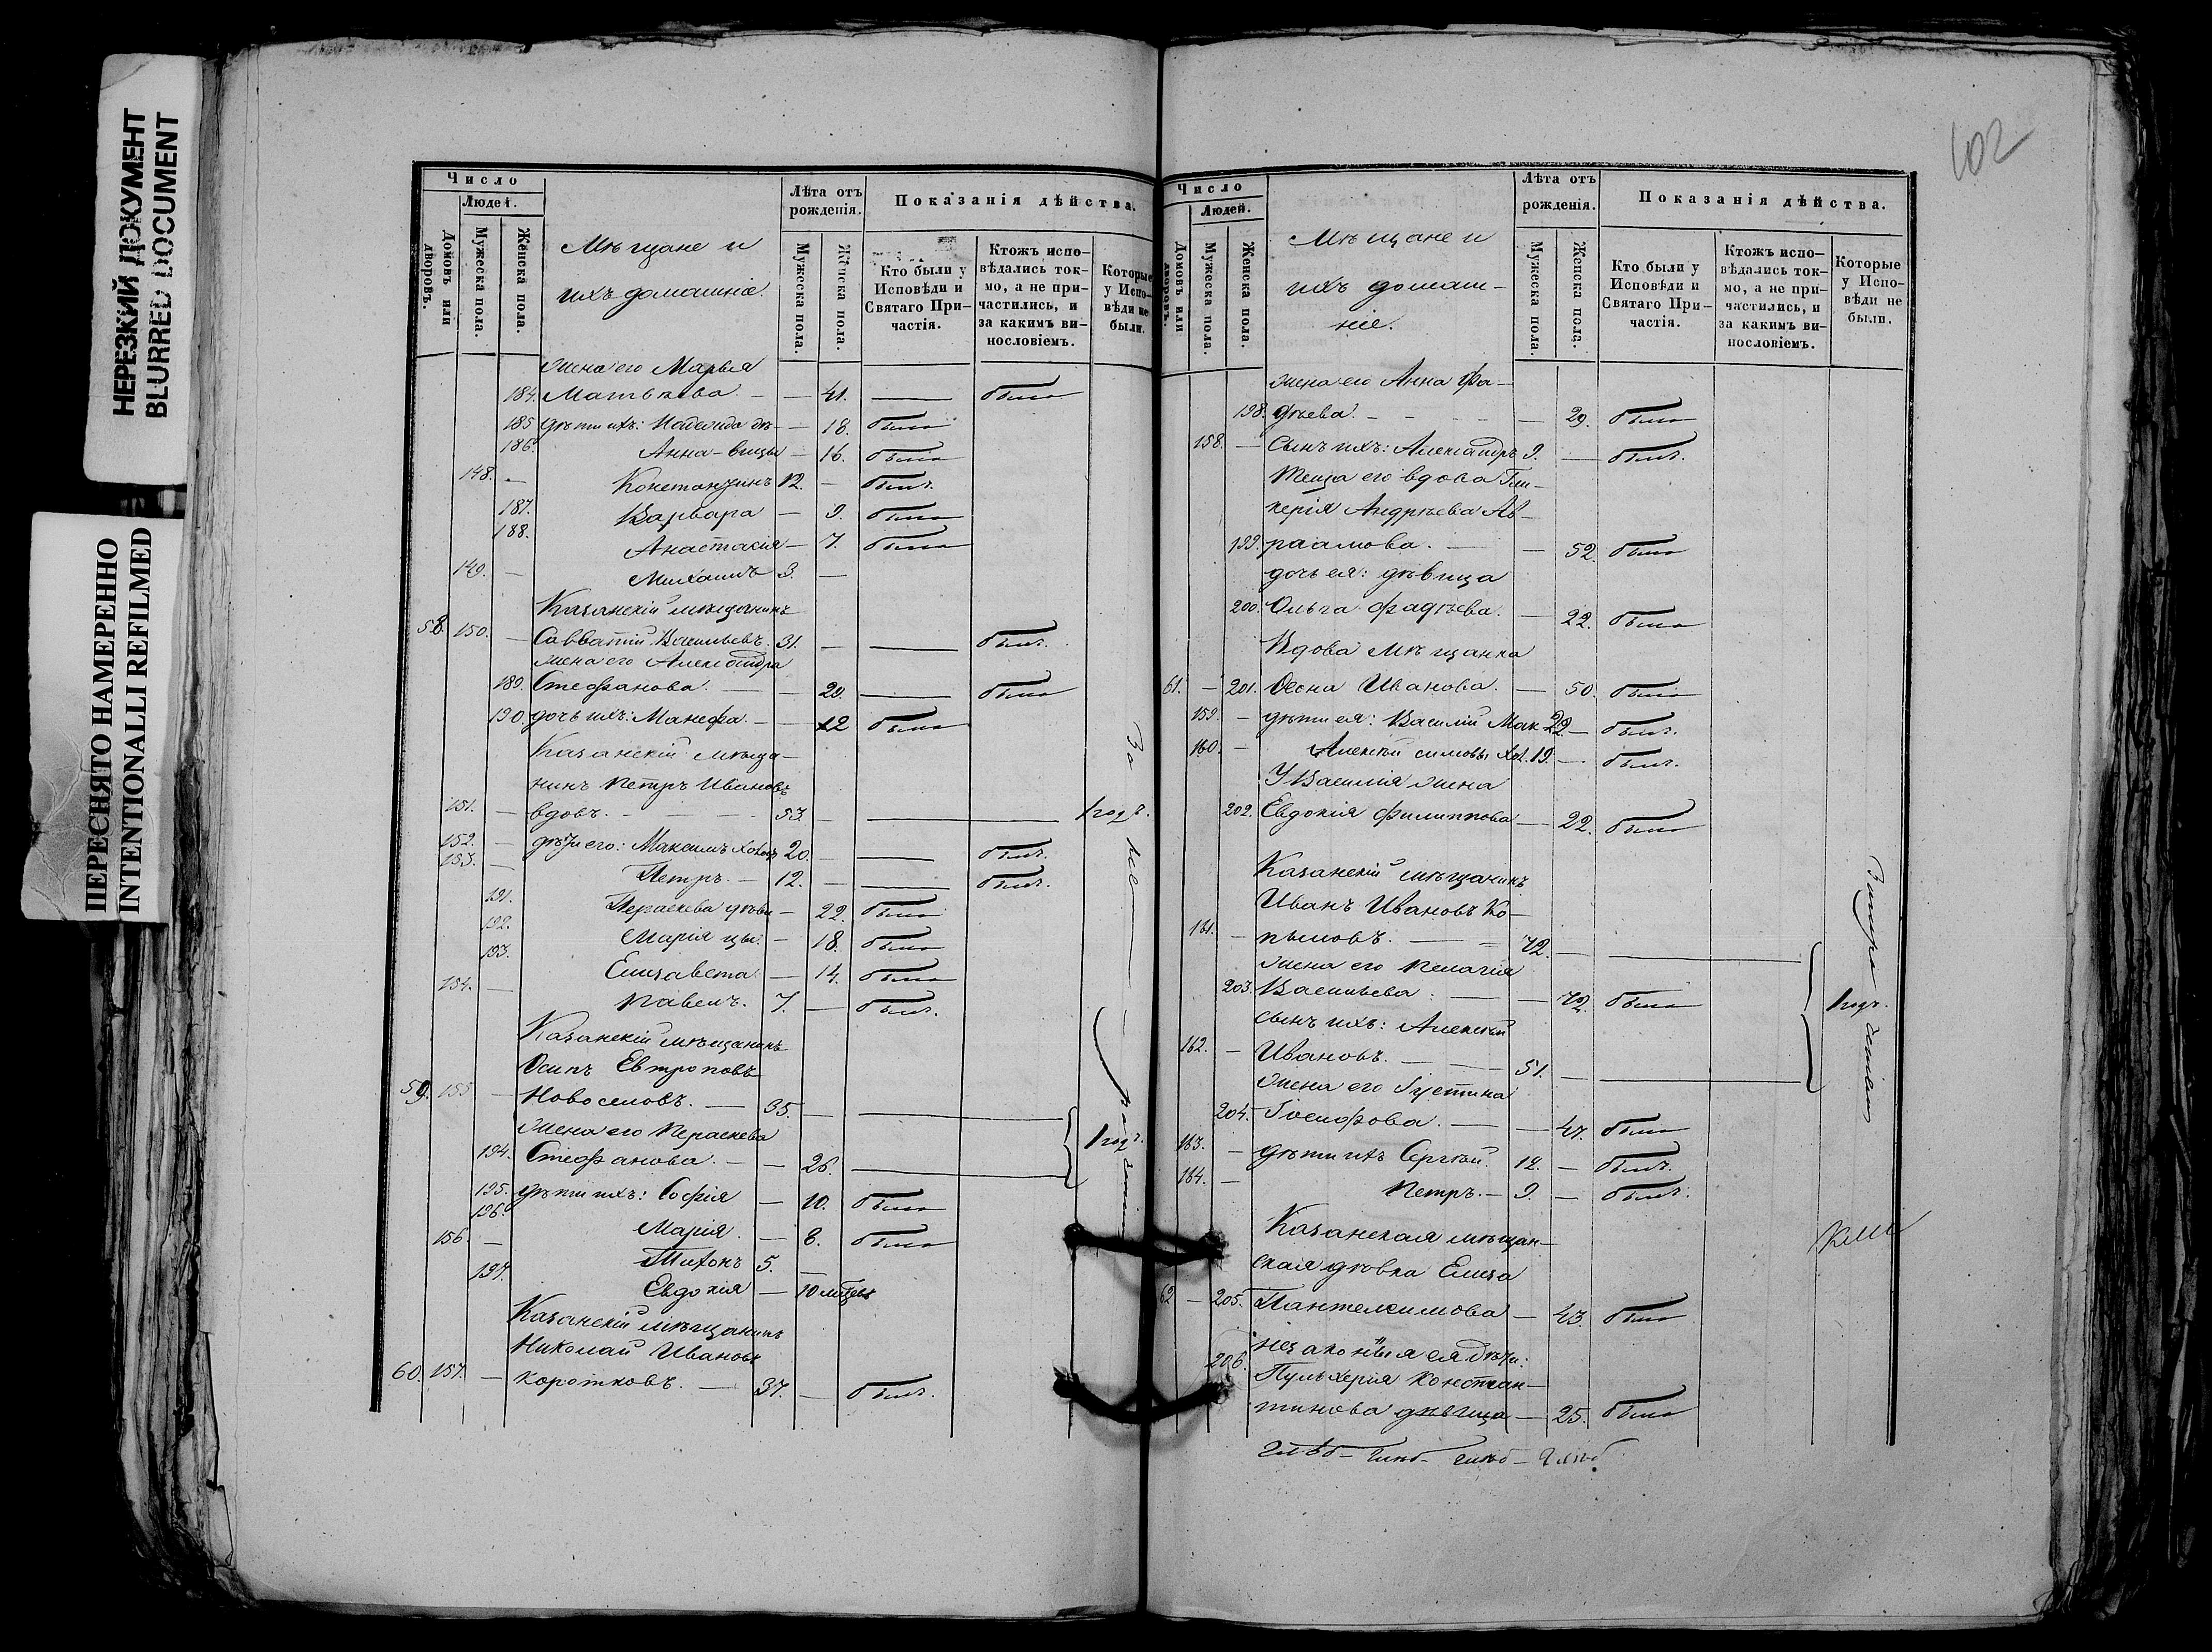 НЕРЕЗКИЙ ДОКУМЕНТ
BLURRED DOCUMENT
ПЕРЕСНЯТО НАМЕРЕННО
INTENTIONALLI REFILMED
Число
Людей.
Домовъ или дворовъ.
Мужеска пола.
Женска пола.
Мѣщане и
ихъ домашніе.
Лѣта отъ рожденія.
Мужеска пола.
Женска пола.
Показанія дѣйства.
Кто были у Исповѣди и Святаго Причастія.
Ктожъ исповѣдались токмо, а не причастились, и за какимъ винословіемъ.
Которые у Исповѣди не были.
Жена его Марья
184. Матвѣева. — — 41. — была
185 дѣти ихъ: Надежда дѣ- — 18. была
186. Анна - вицы — 16. была
148. — Константинъ 12. — былъ.
187. Варвара — 9. была
188. Анастасія — 7. была
149. — Михаилъ 3. —
Казанскій мѣщанинъ
58. 150. — Савватій Васильевъ. 31. — — былъ.
жена его Александра
189. Стефанова. — — 20. — была
190. дочь ихъ: Манефа. — — 12 была
Казанскій мѣща-
нинъ Петръ Ивановъ
151. — вдовъ. — 53. — — 1 годъ.
152. — дѣти его: Максимъ холос. 20. — — былъ.
153. — Петръ. — 12. — — былъ.
191. Параскева дѣви- — 22. была
192. Марія цы. — 18. была
193. Елизавета — 14. была
154. — Павелъ. 7. — былъ.
Казанскій мѣщанинъ
Осипъ Евтроповъ
59. 155 — Новоселовъ. — 35. — —
Жена его Параскева
1 годъ.
194. Стефанова. — — 26. —
195. дѣти ихъ: Софія — 10. была
196. Марія. — 8. была
156. — Тихонъ 5. —
197. Евдокія — 10 мѣсяц.
Казанскій мѣщанинъ
Николай Ивановъ
60. 157. — Коротковъ. — 37. — былъ.
102
Число
Людей.
Домовъ или дворовъ.
Мужеска пола.
Женска пола.
Мѣщане и
ихъ домаш-
ніе.
Лѣта отъ рожденія.
Мужеска пола.
Женска пола.
Показанія дѣйства.
Кто были у Исповѣди и Святаго Причастія.
Ктожъ исповѣдались токмо, а не причастились, и за какимъ винословіемъ.
Которые у Исповѣди не были.
жена его Анна Фа-
198. дѣева. — — 29. была
158. — Сынъ ихъ: Александръ 9. — былъ.
Теща его вдова Гли-
керія Андрѣева Ав-
199. раамова. — — 52. была
дочь ея: дѣвица
200. Ольга Фадѣева. — 22. была
Вдова мѣщанка
61. — 201. Ѳеона Иванова. — 50. была
159. — дѣти ея: Василій Мак 22. — былъ.
160. — Алексѣй симовы хол. 19. — былъ.
У Василія жена
202. Евдокія Филиппова — 22. была
Казанскій мѣщанинъ
Иванъ Ивановъ Ко-
161. — пыловъ. — 72. — —
Жена его Пелагія
203. Васильева. — — 72. была
1 годъ.
сынъ ихъ: Алексѣй
162. — Ивановъ. — 51. — —
Жена его Іустина
204. Іосифова. — — 47. была
163. — дѣти ихъ Сергѣй. 12. — былъ.
164. — Петръ. — 9. — былъ.
Казанская мѣщан-
ская дѣвка Елиза
62 — 205. Пантелеимова — 43. была
незаконныя ея дѣти:
206. Пульхерія Констан-
тинова дѣвица — 25. была